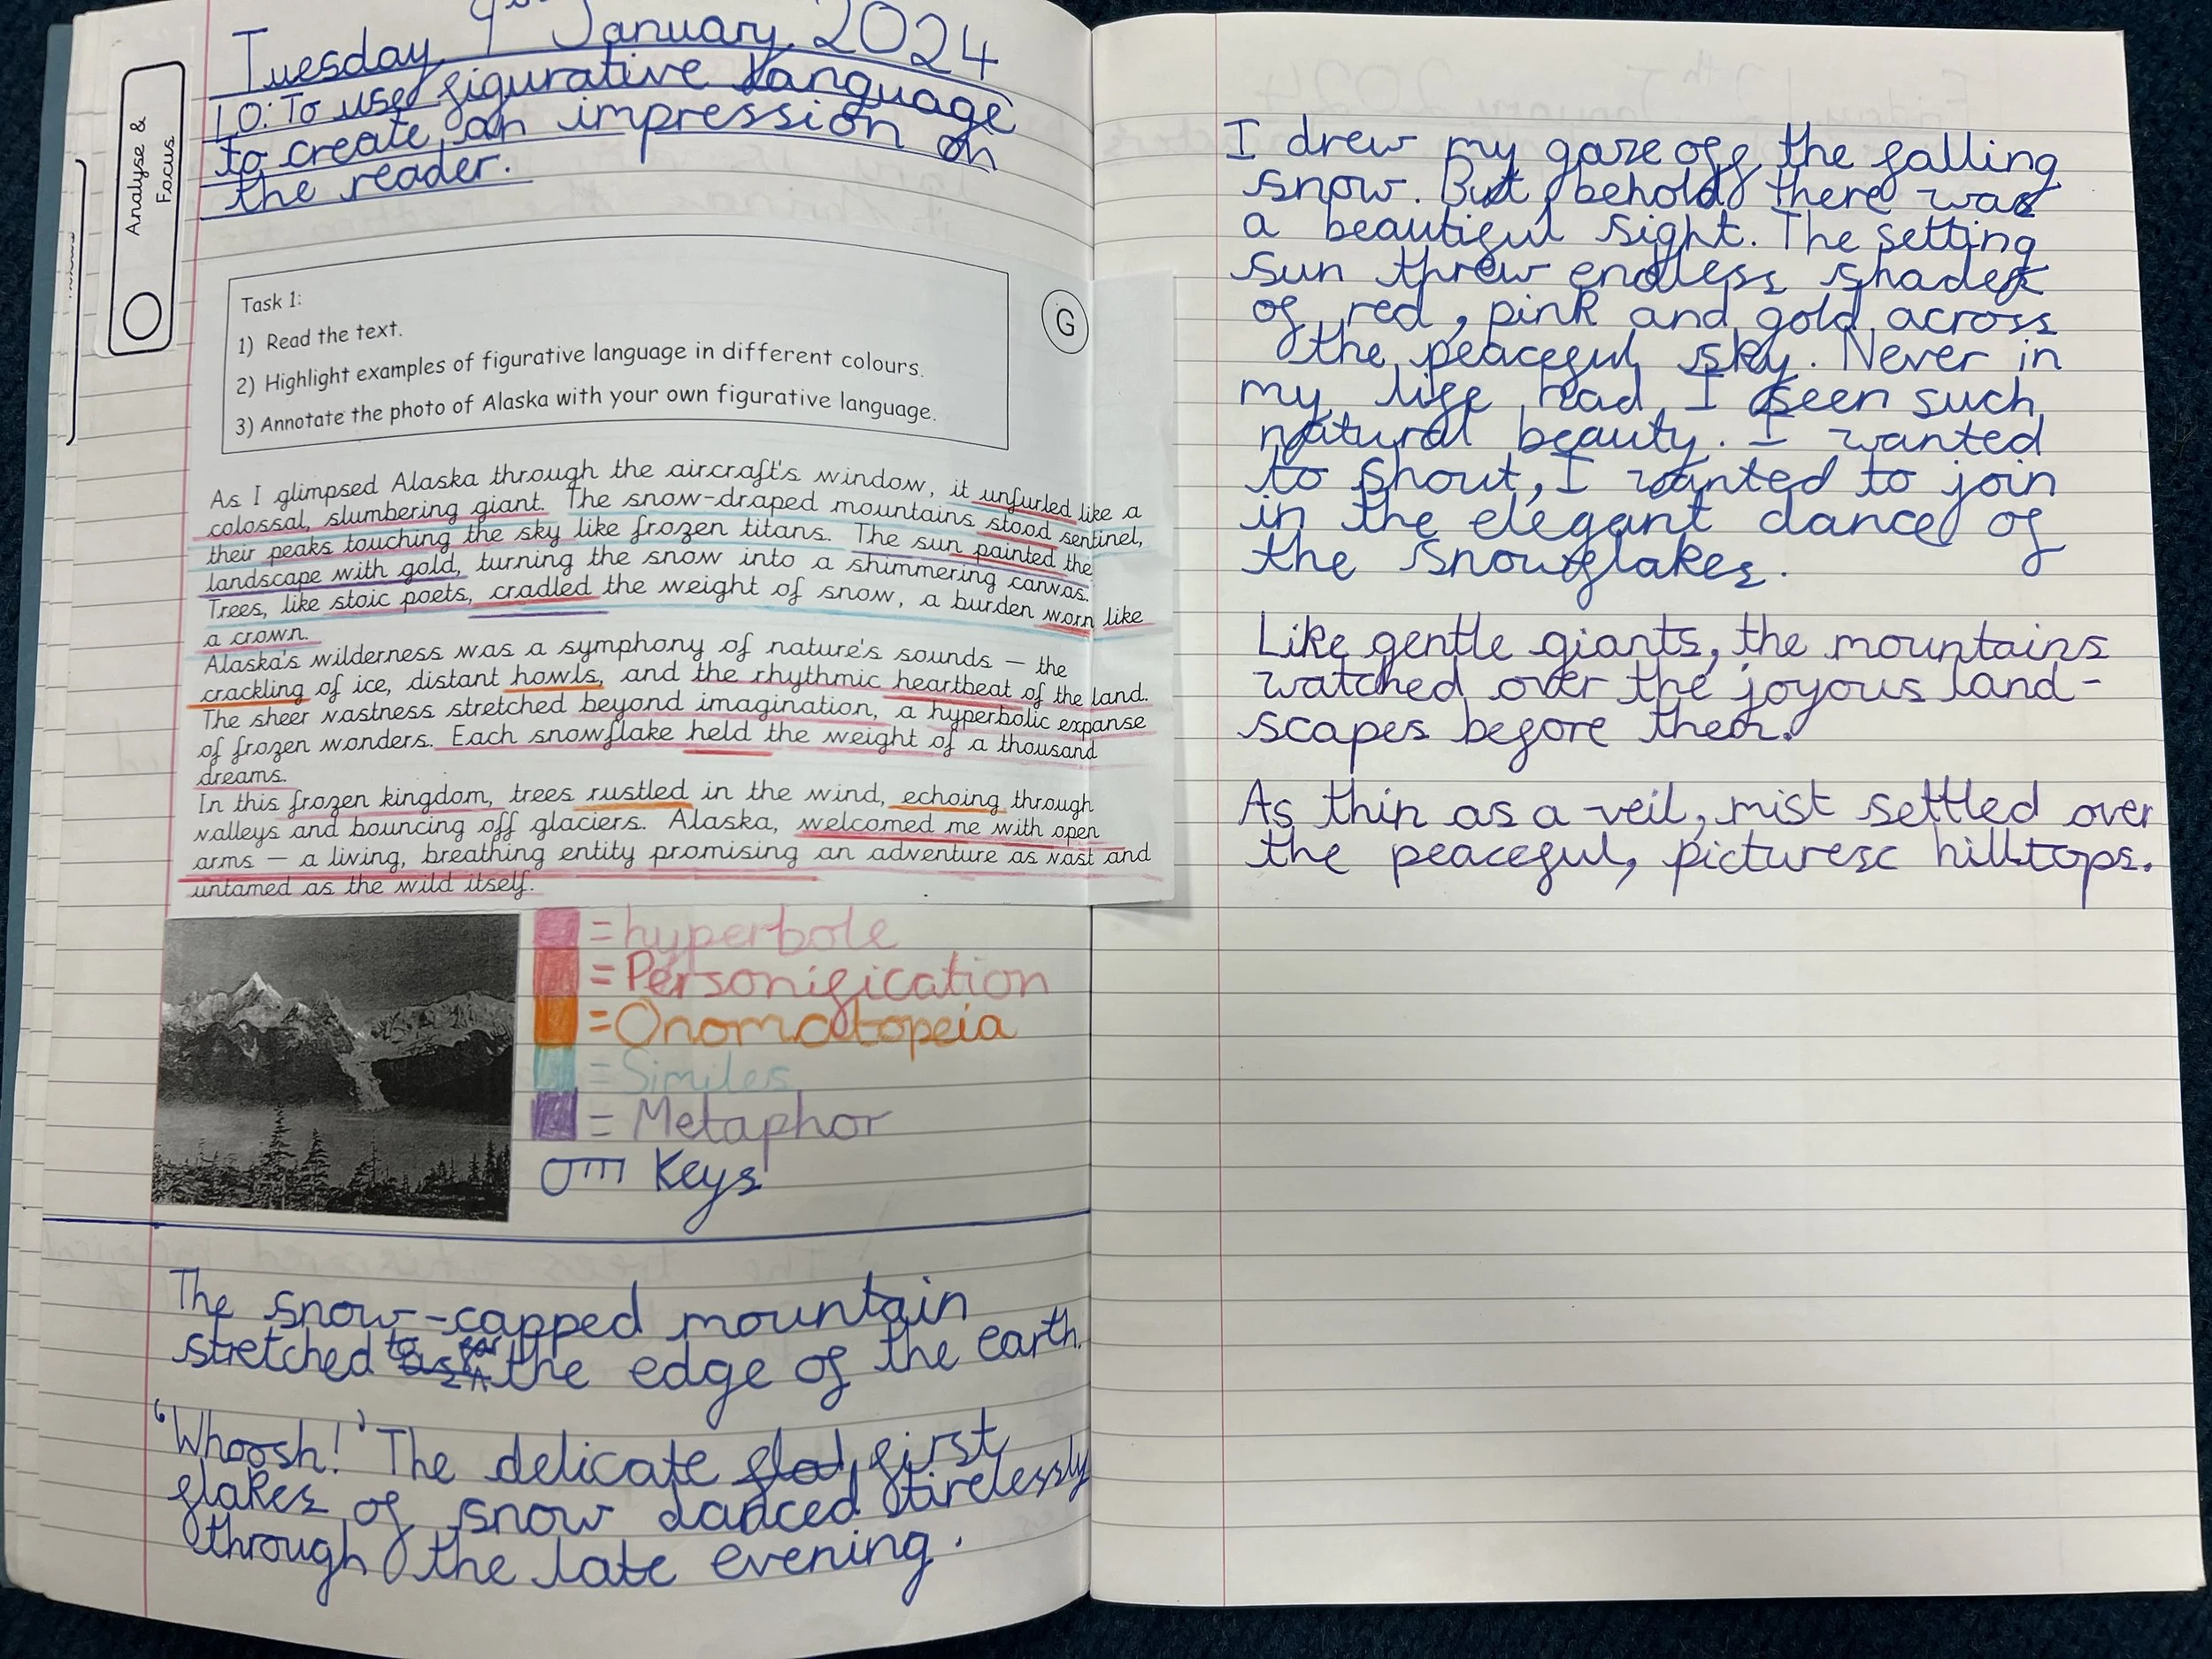 Tuesday 9th January 2024
LO: To use figurative language
to create an impression on
the reader.
Analyse &
Focus
Task 1:
1) Read the text.
2) Highlight examples of figurative language in different colours.
3) Annotate the photo of Alaska with your own figurative language.
G
As I glimpsed Alaska through the aircraft's window, it unfurled like a
colossal, slumbering giant. The snow-draped mountains stood sentinel,
their peaks touching the sky like frozen titans. The sun painted the
landscape with gold, turning the snow into a shimmering canvas.
Trees, like stoic poets, cradled the weight of snow, a burden worn like
a crown.
Alaska's wilderness was a symphony of nature's sounds – the
crackling of ice, distant howls, and the rhythmic heartbeat of the land.
The sheer vastness stretched beyond imagination, a hyperbolic expanse
of frozen wonders. Each snowflake held the weight of a thousand
dreams.
In this frozen kingdom, trees rustled in the wind, echoing through
valleys and bouncing off glaciers. Alaska, welcomed me with open
arms – a living, breathing entity promising an adventure as vast and
untamed as the wild itself.
= hyperbole
= Personification
= Onomatopeia
= Similes
= Metaphor
Keys
The snow-capped mountain
stretched to the edge of the earth.
'Whoosh!' The delicate first
flakes of snow danced tirelessly
through the late evening.
I drew my gaze off the falling
snow. But behold there was
a beautiful sight. The setting
sun threw endless shades
of red, pink and gold across
the peaceful sky. Never in
my life had I seen such
natural beauty. I wanted
to shout, I wanted to join
in the elegant dance of
the snowflakes.
Like gentle giants, the mountains
watched over the joyous land-
scapes before them.
As thin as a veil, mist settled over
the peaceful, picturesc hilltops.